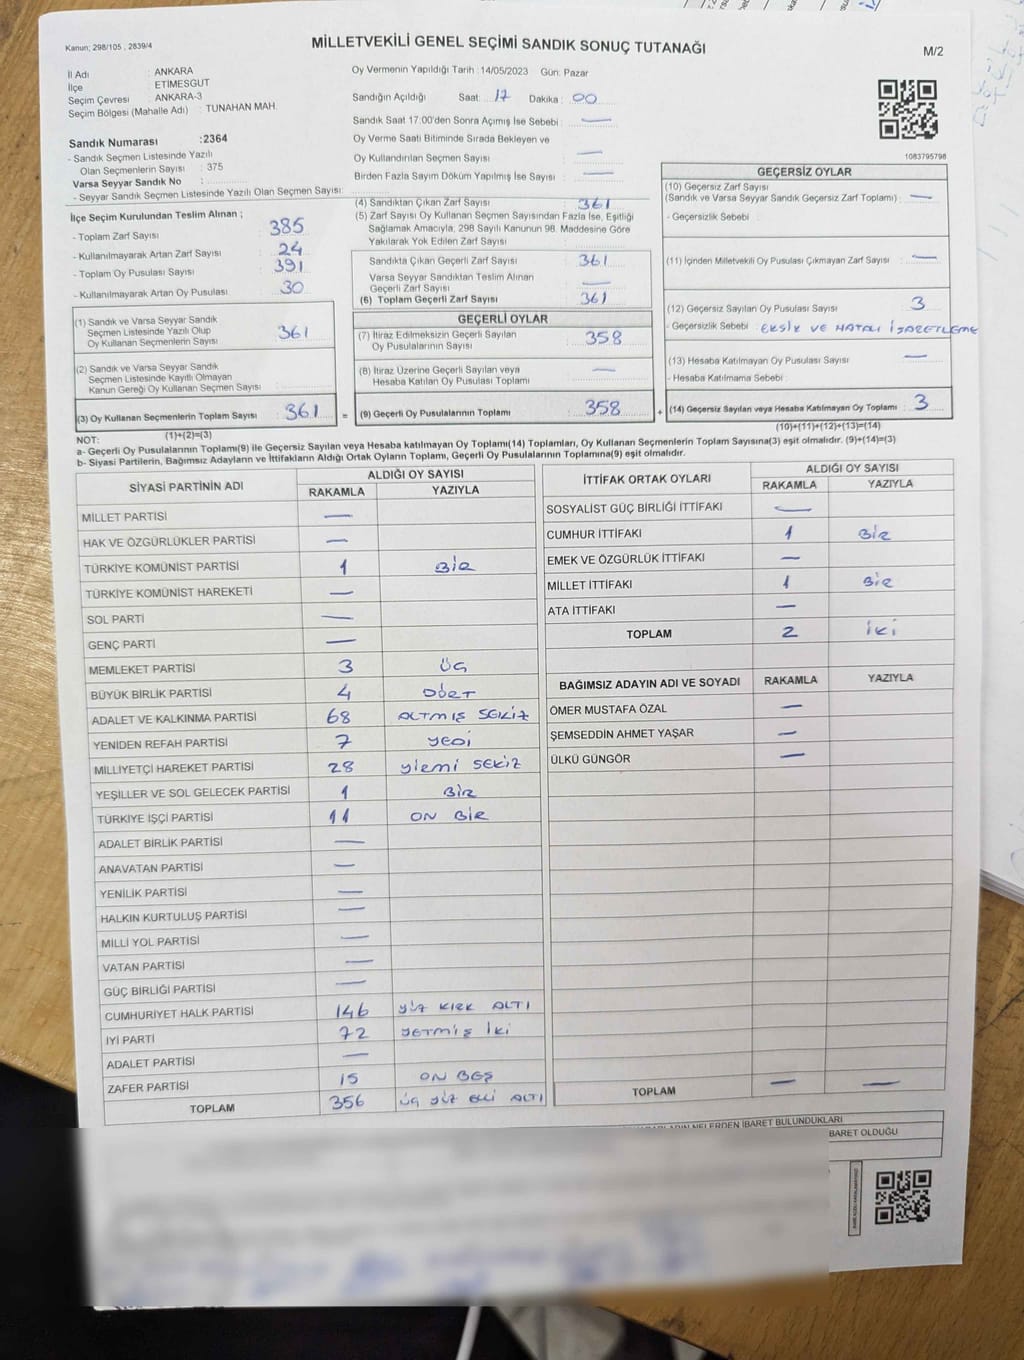 Kanun; 298/105 , 2839/4
MİLLETVEKİLİ GENEL SEÇİMİ SANDIK SONUÇ TUTANAĞI
M/2
İl Adı : ANKARA
İlçe : ETİMESGUT
Seçim Çevresi : ANKARA-3
Seçim Bölgesi (Mahalle Adı) : TUNAHAN MAH.
Sandık Numarası :2364
- Sandık Seçmen Listesinde Yazılı
Olan Seçmenlerin Sayısı : 375
Varsa Seyyar Sandık No :
- Seyyar Sandık Seçmen Listesinde Yazılı Olan Seçmen Sayısı:
Oy Vermenin Yapıldığı Tarih :14/05/2023 Gün: Pazar
Sandığın Açıldığı Saat: 17 Dakika : 00
Sandık Saat 17:00'den Sonra Açımış İse Sebebi : —
Oy Verme Saati Bitiminde Sırada Bekleyen ve
Oy Kullandırılan Seçmen Sayısı : —
Birden Fazla Sayım Döküm Yapılmış İse Sayısı : —
1083795798
İlçe Seçim Kurulundan Teslim Alınan ;
- Toplam Zarf Sayısı : 385
- Kullanılmayarak Artan Zarf Sayısı : 24
- Toplam Oy Pusulası Sayısı : 391
- Kullanılmayarak Artan Oy Pusulası : 30
(1) Sandık ve Varsa Seyyar Sandık
Seçmen Listesinde Yazılı Olup
Oy Kullanan Seçmenlerin Sayısı : 361
(2) Sandık ve Varsa Seyyar Sandık
Seçmen Listesinde Kayıtlı Olmayan
Kanun Gereği Oy Kullanan Seçmen Sayısı :
(3) Oy Kullanan Seçmenlerin Toplam Sayısı : 361 =
(1)+(2)=(3)
(4) Sandıktan Çıkan Zarf Sayısı : 361
(5) Zarf Sayısı Oy Kullanan Seçmen Sayısından Fazla İse, Eşitliği
Sağlamak Amacıyla, 298 Sayılı Kanunun 98. Maddesine Göre
Yakılarak Yok Edilen Zarf Sayısı :
Sandıkta Çıkan Geçerli Zarf Sayısı : 361
Varsa Seyyar Sandıktan Teslim Alınan
Geçerli Zarf Sayısı : —
(6) Toplam Geçerli Zarf Sayısı : 361
GEÇERLİ OYLAR
(7) İtiraz Edilmeksizin Geçerli Sayılan
Oy Pusulalarının Sayısı : 358
(8) İtiraz Üzerine Geçerli Sayılan veya
Hesaba Katılan Oy Pusulası Toplamı : —
(9) Geçerli Oy Pusulalarının Toplamı : 358 +
GEÇERSİZ OYLAR
(10) Geçersiz Zarf Sayısı
(Sandık ve Varsa Seyyar Sandık Geçersiz Zarf Toplamı) : —
- Geçersizlik Sebebi :
(11) İçinden Milletvekili Oy Pusulası Çıkmayan Zarf Sayısı : —
(12) Geçersiz Sayılan Oy Pusulası Sayısı : 3
- Geçersizlik Sebebi : EKSİK VE HATALI İŞARETLEME
(13) Hesaba Katılmayan Oy Pusulası Sayısı : —
- Hesaba Katılmama Sebebi :
(14) Geçersiz Sayılan veya Hesaba Katılmayan Oy Toplamı : 3
(10)+(11)+(12)+(13)=(14)
NOT:
a- Geçerli Oy Pusulalarının Toplamı(9) ile Geçersiz Sayılan veya Hesaba katılmayan Oy Toplamı(14) Toplamları, Oy Kullanan Seçmenlerin Toplam Sayısına(3) eşit olmalıdır. (9)+(14)=(3)
b- Siyasi Partilerin, Bağımsız Adayların ve İttifakların Aldığı Ortak Oyların Toplamı, Geçerli Oy Pusulalarının Toplamına(9) eşit olmalıdır.
SİYASİ PARTİNİN ADI ALDIĞI OY SAYISI
RAKAMLA YAZIYLA
MİLLET PARTİSİ —
HAK VE ÖZGÜRLÜKLER PARTİSİ —
TÜRKİYE KOMÜNİST PARTİSİ 1 BİR
TÜRKİYE KOMÜNİST HAREKETİ —
SOL PARTİ —
GENÇ PARTİ —
MEMLEKET PARTİSİ 3 ÜÇ
BÜYÜK BİRLİK PARTİSİ 4 DÖRT
ADALET VE KALKINMA PARTİSİ 68 ALTMIŞ SEKİZ
YENİDEN REFAH PARTİSİ 7 YEDİ
MİLLİYETÇİ HAREKET PARTİSİ 28 YİRMİ SEKİZ
YEŞİLLER VE SOL GELECEK PARTİSİ 1 BİR
TÜRKİYE İŞÇİ PARTİSİ 11 ON BİR
ADALET BİRLİK PARTİSİ —
ANAVATAN PARTİSİ —
YENİLİK PARTİSİ —
HALKIN KURTULUŞ PARTİSİ —
MİLLİ YOL PARTİSİ —
VATAN PARTİSİ —
GÜÇ BİRLİĞİ PARTİSİ —
CUMHURİYET HALK PARTİSİ 146 YÜZ KIRK ALTI
İYİ PARTİ 72 YETMİŞ İKİ
ADALET PARTİSİ —
ZAFER PARTİSİ 15 ON BEŞ
TOPLAM 356 ÜÇ YÜZ ELLİ ALTI
İTTİFAK ORTAK OYLARI ALDIĞI OY SAYISI
RAKAMLA YAZIYLA
SOSYALİST GÜÇ BİRLİĞİ İTTİFAKI —
CUMHUR İTTİFAKI 1 BİR
EMEK VE ÖZGÜRLÜK İTTİFAKI —
MİLLET İTTİFAKI 1 BİR
ATA İTTİFAKI —
TOPLAM 2 İKİ
BAĞIMSIZ ADAYIN ADI VE SOYADI RAKAMLA YAZIYLA
ÖMER MUSTAFA ÖZAL —
ŞEMSEDDİN AHMET YAŞAR —
ÜLKÜ GÜNGÖR —
TOPLAM — —
NELERDEN İBARET BULUNDUKLARI
BARET OLDUĞU